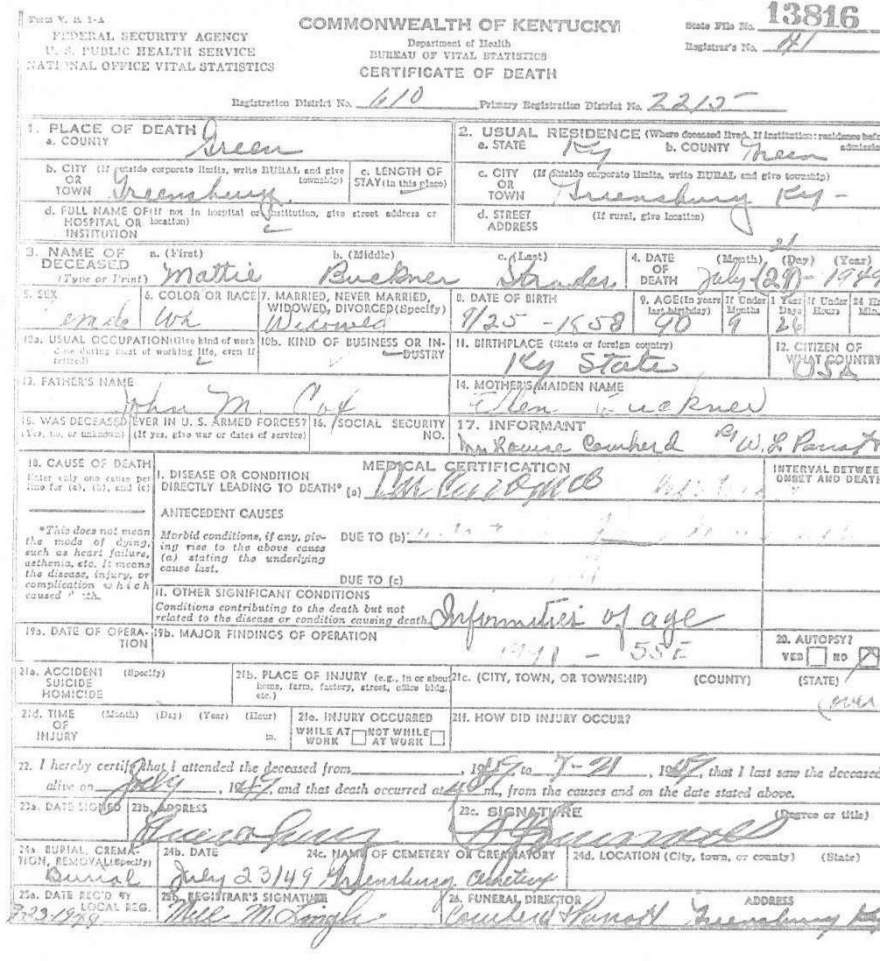 Form V. S. 1-A
FEDERAL SECURITY AGENCY
U. S. PUBLIC HEALTH SERVICE
NATIONAL OFFICE VITAL STATISTICS
COMMONWEALTH OF KENTUCKY
Department of Health
BUREAU OF VITAL STATISTICS
CERTIFICATE OF DEATH
State File No. 13816
Registrar's No. 41
Registration District No. 610 Primary Registration District No. 2215
1. PLACE OF DEATH
a. COUNTY Green
2. USUAL RESIDENCE (Where deceased lived. If institution: residence before admission)
a. STATE Ky b. COUNTY Green
b. CITY (If outside corporate limits, write RURAL and give township) OR TOWN Greensburg
c. LENGTH OF STAY (in this place)
c. CITY (If outside corporate limits, write RURAL and give township) OR TOWN Greensburg Ky -
d. FULL NAME OF (If not in hospital or institution, give street address or location) HOSPITAL OR INSTITUTION
d. STREET ADDRESS (If rural, give location)
3. NAME OF DECEASED (Type or Print)
a. (First) Mattie b. (Middle) Buckner c. (Last)
4. DATE OF DEATH (Month) (Day) (Year) July 21 1949
5. SEX
6. COLOR OR RACE Wh
7. MARRIED, NEVER MARRIED, WIDOWED, DIVORCED (Specify) Widowed
8. DATE OF BIRTH 9/25-1858
9. AGE (In years last birthday) 90 If Under 1 Year Months 9 Days 26 If Under 24 Hrs Hours Min.
10a. USUAL OCCUPATION (Give kind of work done during most of working life, even if retired)
10b. KIND OF BUSINESS OR INDUSTRY
11. BIRTHPLACE (State or foreign country) Ky State
12. CITIZEN OF WHAT COUNTRY USA
13. FATHER'S NAME John M. Cox
14. MOTHER'S MAIDEN NAME Ellen Buckner
15. WAS DECEASED EVER IN U. S. ARMED FORCES? (Yes, no, or unknown) (If yes, give war or dates of service)
16. SOCIAL SECURITY NO.
17. INFORMANT Mrs Louise Cowherd By W. L. Parrott
18. CAUSE OF DEATH
Enter only one cause per line for (a), (b), and (c)
MEDICAL CERTIFICATION
INTERVAL BETWEEN ONSET AND DEATH
I. DISEASE OR CONDITION DIRECTLY LEADING TO DEATH* (a)
*This does not mean the mode of dying, such as heart failure, asthenia, etc. It means the disease, injury, or complication which caused death.
ANTECEDENT CAUSES
Morbid conditions, if any, giving rise to the above cause (a) stating the underlying cause last.
DUE TO (b)
DUE TO (c)
II. OTHER SIGNIFICANT CONDITIONS
Conditions contributing to the death but not related to the disease or condition causing death. Infirmities of age
19a. DATE OF OPERATION
19b. MAJOR FINDINGS OF OPERATION
20. AUTOPSY? YES NO
21a. ACCIDENT SUICIDE HOMICIDE (Specify)
21b. PLACE OF INJURY (e.g., in or about home, farm, factory, street, office bldg., etc.)
21c. (CITY, TOWN, OR TOWNSHIP) (COUNTY) (STATE)
over
21d. TIME OF INJURY (Month) (Day) (Year) (Hour) m.
21e. INJURY OCCURRED WHILE AT WORK NOT WHILE AT WORK
21f. HOW DID INJURY OCCUR?
22. I hereby certify that I attended the deceased from , 1949 to 7-21, 1949, that I last saw the deceased
alive on July, 1949, and that death occurred at m., from the causes and on the date stated above.
23a. DATE SIGNED
23b. ADDRESS Greensburg
23c. SIGNATURE (Degree or title)
24a. BURIAL, CREMATION, REMOVAL (Specify) Burial
24b. DATE July 23/49
24c. NAME OF CEMETERY OR CREMATORY Greensburg Cemetery
24d. LOCATION (City, town, or county) (State)
25a. DATE REC'D BY LOCAL REG. 7-23-1949
25b. REGISTRAR'S SIGNATURE
26. FUNERAL DIRECTOR Cowherd & Parrott ADDRESS Greensburg Ky